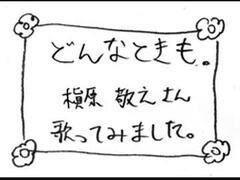 どんなときも。
槇原 敬之 さん
歌ってみました。